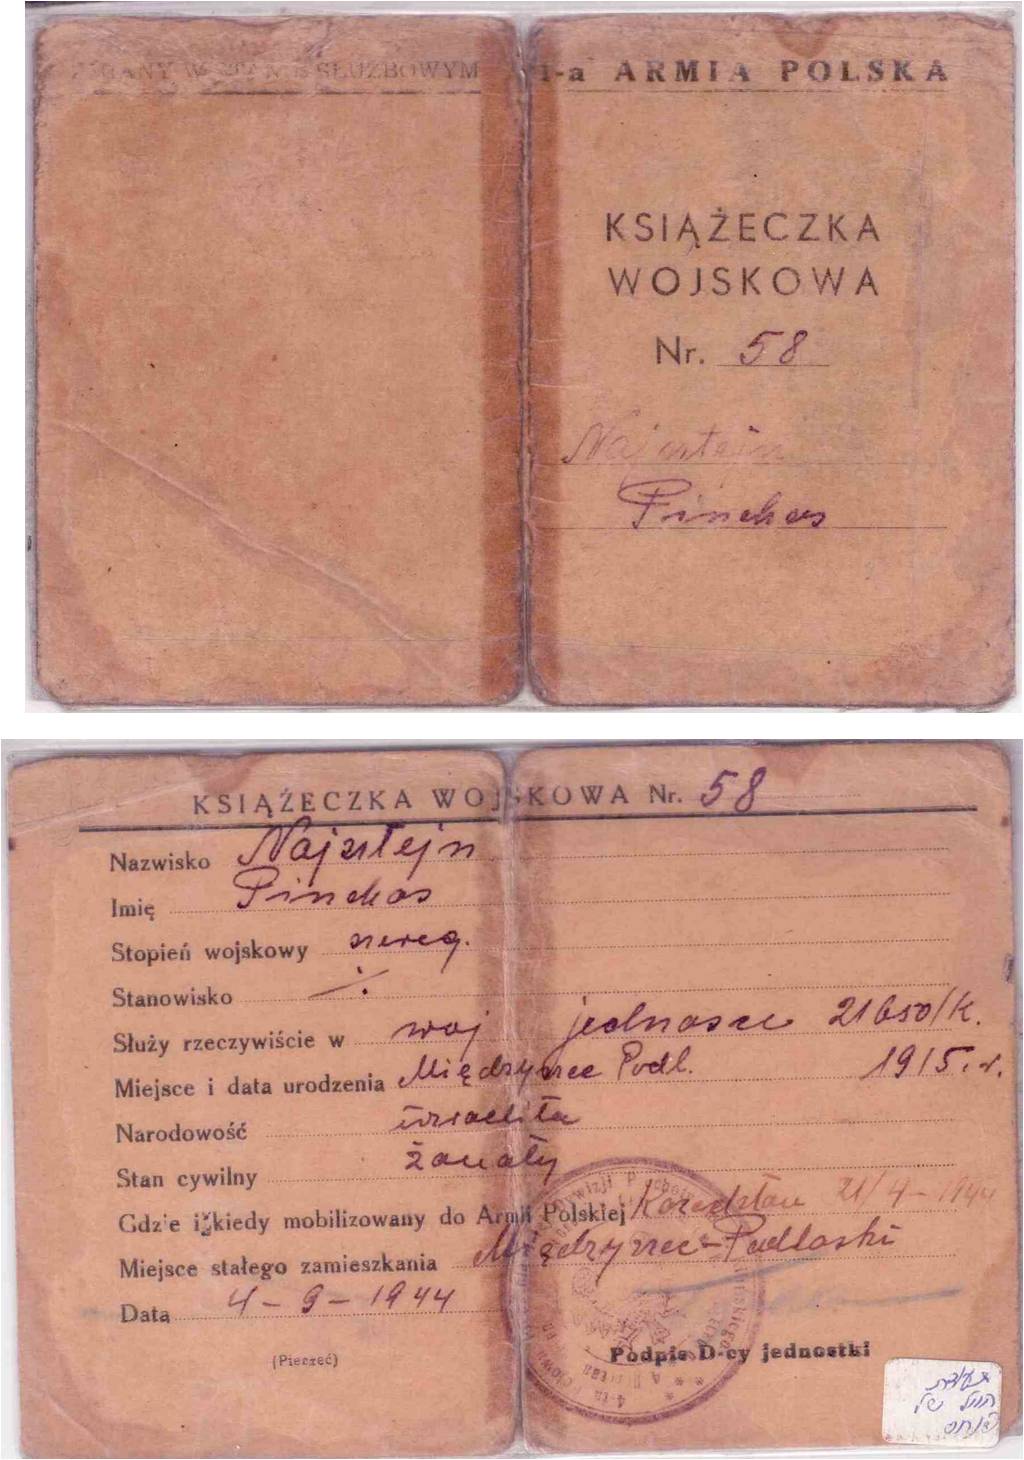 ZMIANY W STANIE SŁUŻBOWYM
1-a ARMIA POLSKA
KSIĄŻECZKA
WOJSKOWA
Nr. 58
Najsztejn
Pinchas
KSIĄŻECZKA WOJSKOWA Nr. 58
Nazwisko Najsztejn
Imię Pinchas
Stopień wojskowy szereg.
Stanowisko
Służy rzeczywiście w woj jednosce 21650/K.
Miejsce i data urodzenia Międzyrzec Podl. 1915.r.
Narodowość izraelita
Stan cywilny żonaty
Gdzie i kiedy mobilizowany do Armii Polskiej Kazachstan 21/4-1944
Miejsce stałego zamieszkania Międzyrzec-Podlaski
Data 4-9-1944
(Pieczęć)
Podpis D-cy jednostki
תעודת
החייל של
פנחס